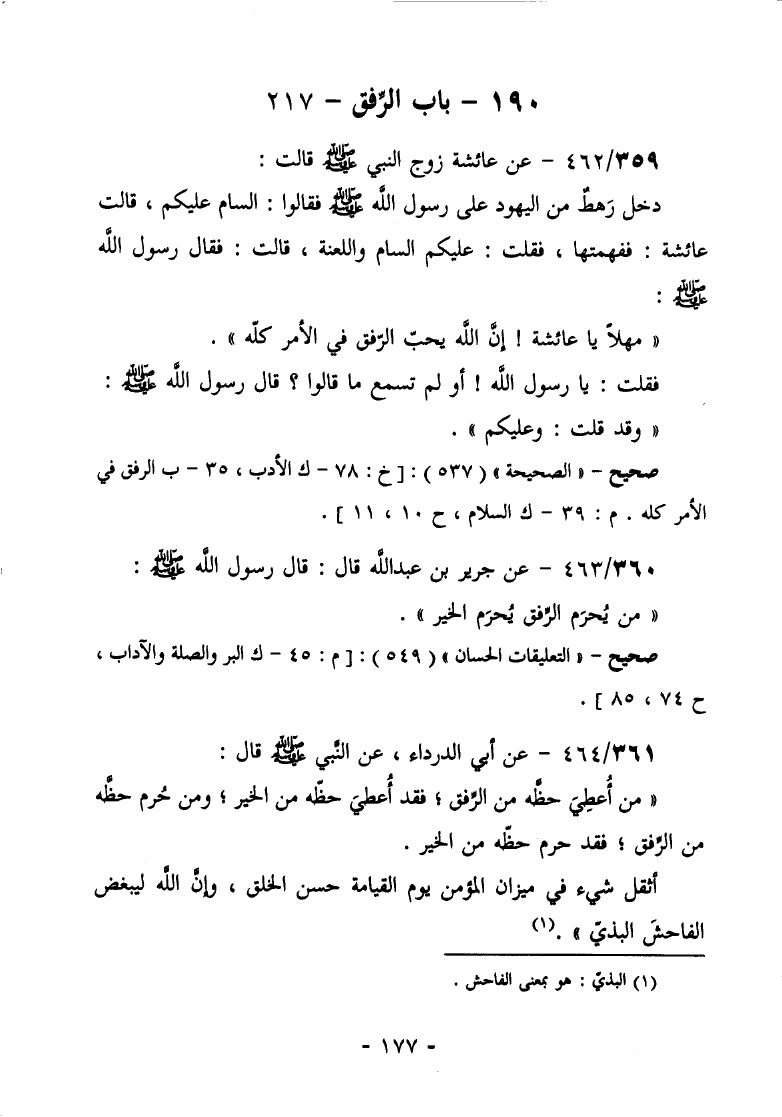 ١٩٠ - باب الرِّفق - ٢١٧
٤٦٢/٣٥٩ - عن عائشة زوج النبي ﷺ قالت :
دخل رَهطٌ من اليهود على رسول اللَّه ﷺ فقالوا : السام عليكم ، قالت
عائشة : ففهمتها ، فقلت : عليكم السام واللعنة ، قالت : فقال رسول اللَّه
ﷺ :
« مهلاً يا عائشة ! إنَّ اللَّه يحبّ الرّفق في الأمر كلّه » .
فقلت : يا رسول اللَّه ! أو لم تسمع ما قالوا ؟ قال رسول اللَّه ﷺ :
« وقد قلت : وعليكم » .
صحيح - « الصحيحة » ( ٥٣٧ ) : [ خ : ٧٨ - ك الأدب ، ٣٥ - ب الرفق في
الأمر كله . م : ٣٩ - ك السلام ، ح ١٠ ، ١١ ] .
٤٦٣/٣٦٠ - عن جرير بن عبداللَّه قال : قال رسول اللَّه ﷺ :
« من يُحرَم الرِّفق يُحرَم الخير » .
صحيح - « التعليقات الحسان » ( ٥٤٩ ) : [ م : ٤٥ - ك البر والصلة والآداب ،
ح ٧٤ ، ٨٥ ] .
٤٦٤/٣٦١ - عن أبي الدرداء ، عن النَّبي ﷺ قال :
« من أُعطِيَ حظَّه من الرِّفق ؛ فقد أُعطيَ حظّه من الخير ؛ ومن حُرم حظَّه
من الرِّفق ؛ فقد حرم حظّه من الخير .
أثقل شيء في ميزان المؤمن يوم القيامة حسن الخلق ، وإنَّ اللَّه ليبغض
الفاحشَ البذيّ » .(١)
(١) البذيّ : هو بمعنى الفاحش .
- ١٧٧ -